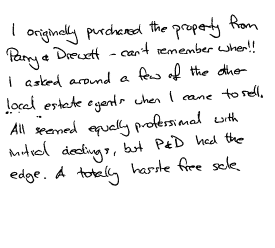 I originally purchased the property from
Parry & Drewett - can't remember when!!
I asked around a few of the other
local estate agents when I came to sell.
All seemed equally professional with
initial dealings, but P&D had the
edge. A totally hassle free sale.